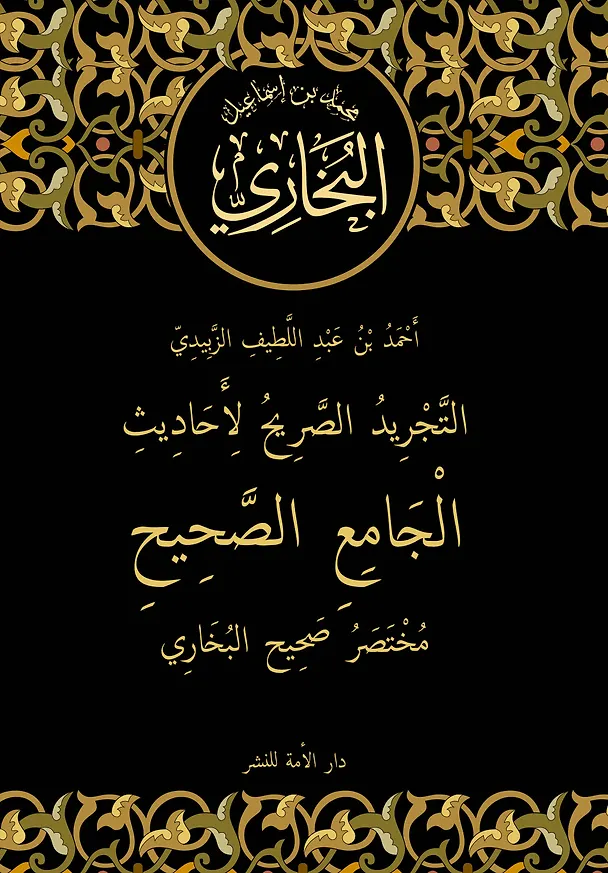 محمد بن إسماعيل
البُخَارِيّ
أَحْمَدُ بْنُ عَبْدِ اللَّطِيفِ الزَّبِيدِيّ
التَّجْرِيدُ الصَّرِيحُ لِأَحَادِيثِ
الْجَامِعِ الصَّحِيحِ
مُخْتَصَرُ صَحِيح البُخَارِي
دار الأمة للنشر